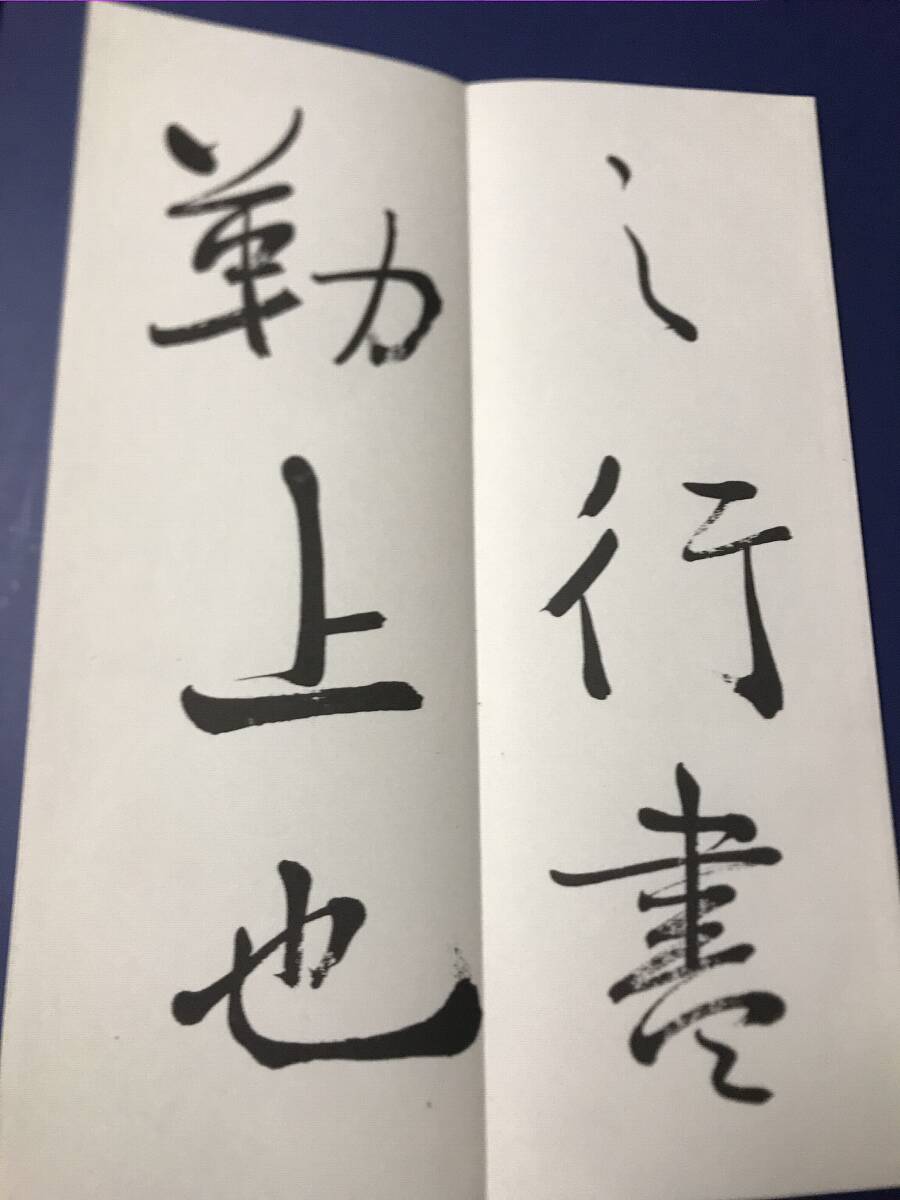 之行盡
勤上也